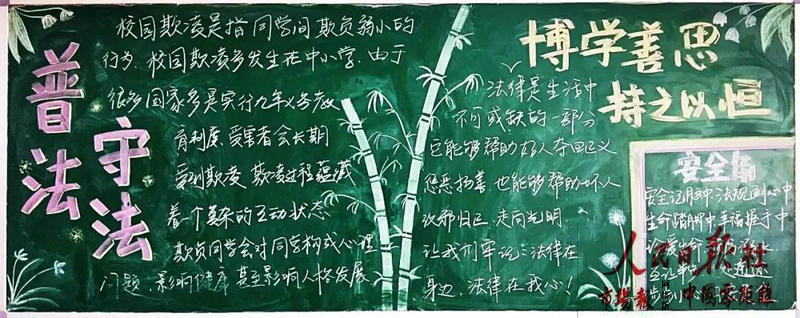 普法
守法
校园欺凌是指同学间欺负弱小的
行为，校园欺凌多发生在中小学，由于
很多国家多是实行九年义务教
育制度，受害者会长期
受到欺凌 欺凌过程蕴藏
着一个复杂的互动状态
欺负同学会对同学构成心理
问题，影响健康 甚至影响人格发展
博学善思
持之以恒
法律是生活中
不可或缺的一部分
它能够帮助好人夺回正义
惩恶扬善 也能够帮助坏人
改邪归正，走向光明，
让我们牢记：法律在
身边，法律在我心！
安全角
安全记月中 法规刻心中
生命踏脚中 幸福握手中
人民日报社
市场报 中国云质链